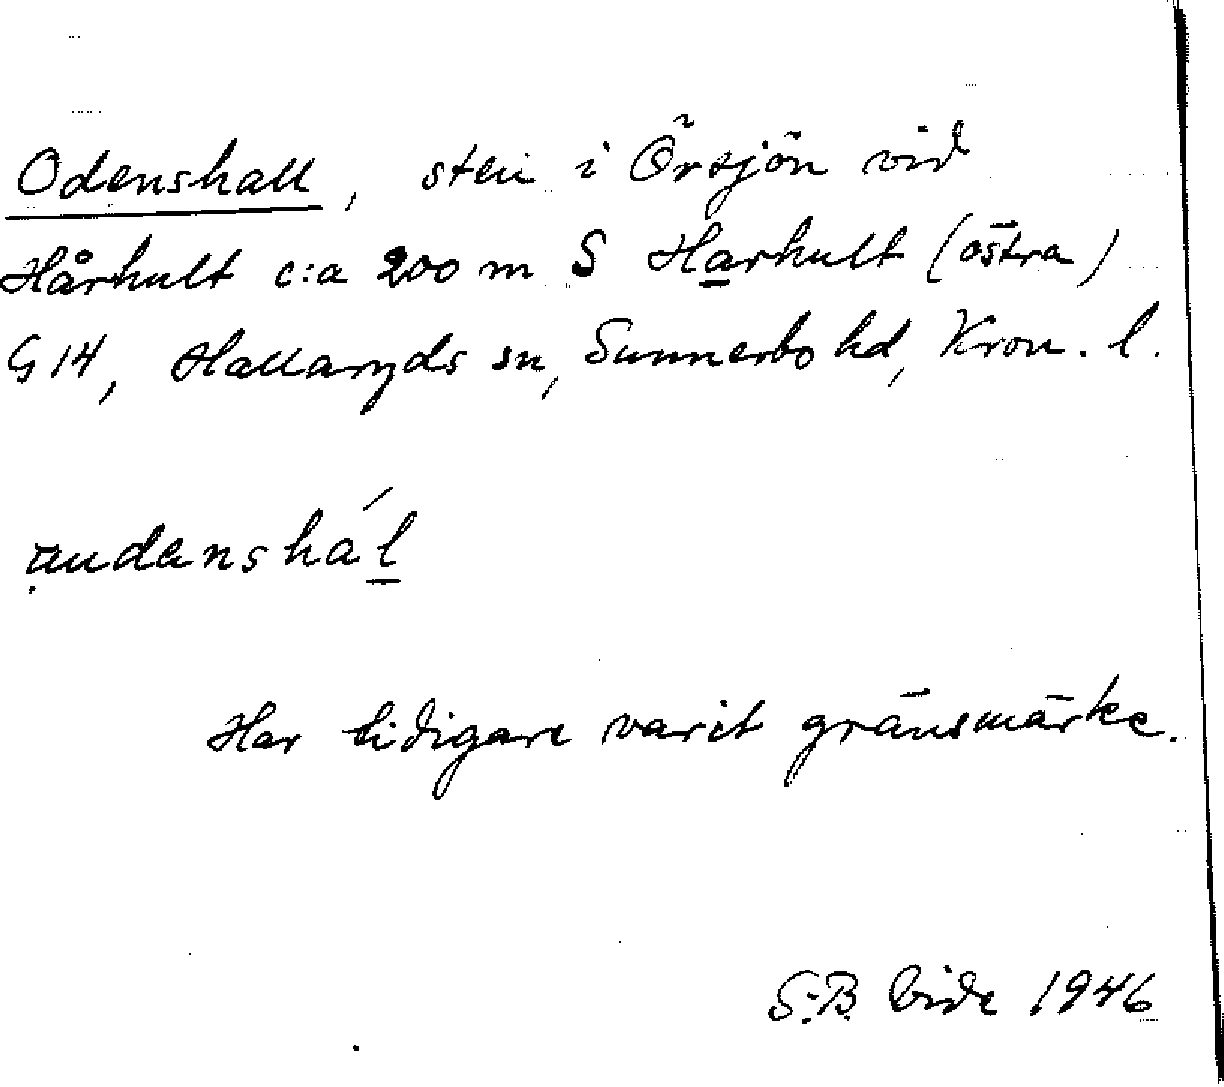 Odenshall, sten i Örsjön vid
Hårhult c:a 200 m S Harhult (östra)
G 14, Hallaryds sn, Sunnerbo hd, Kron. l.
Har tidigare varit gränsmärke.
S. B. Vide 1946